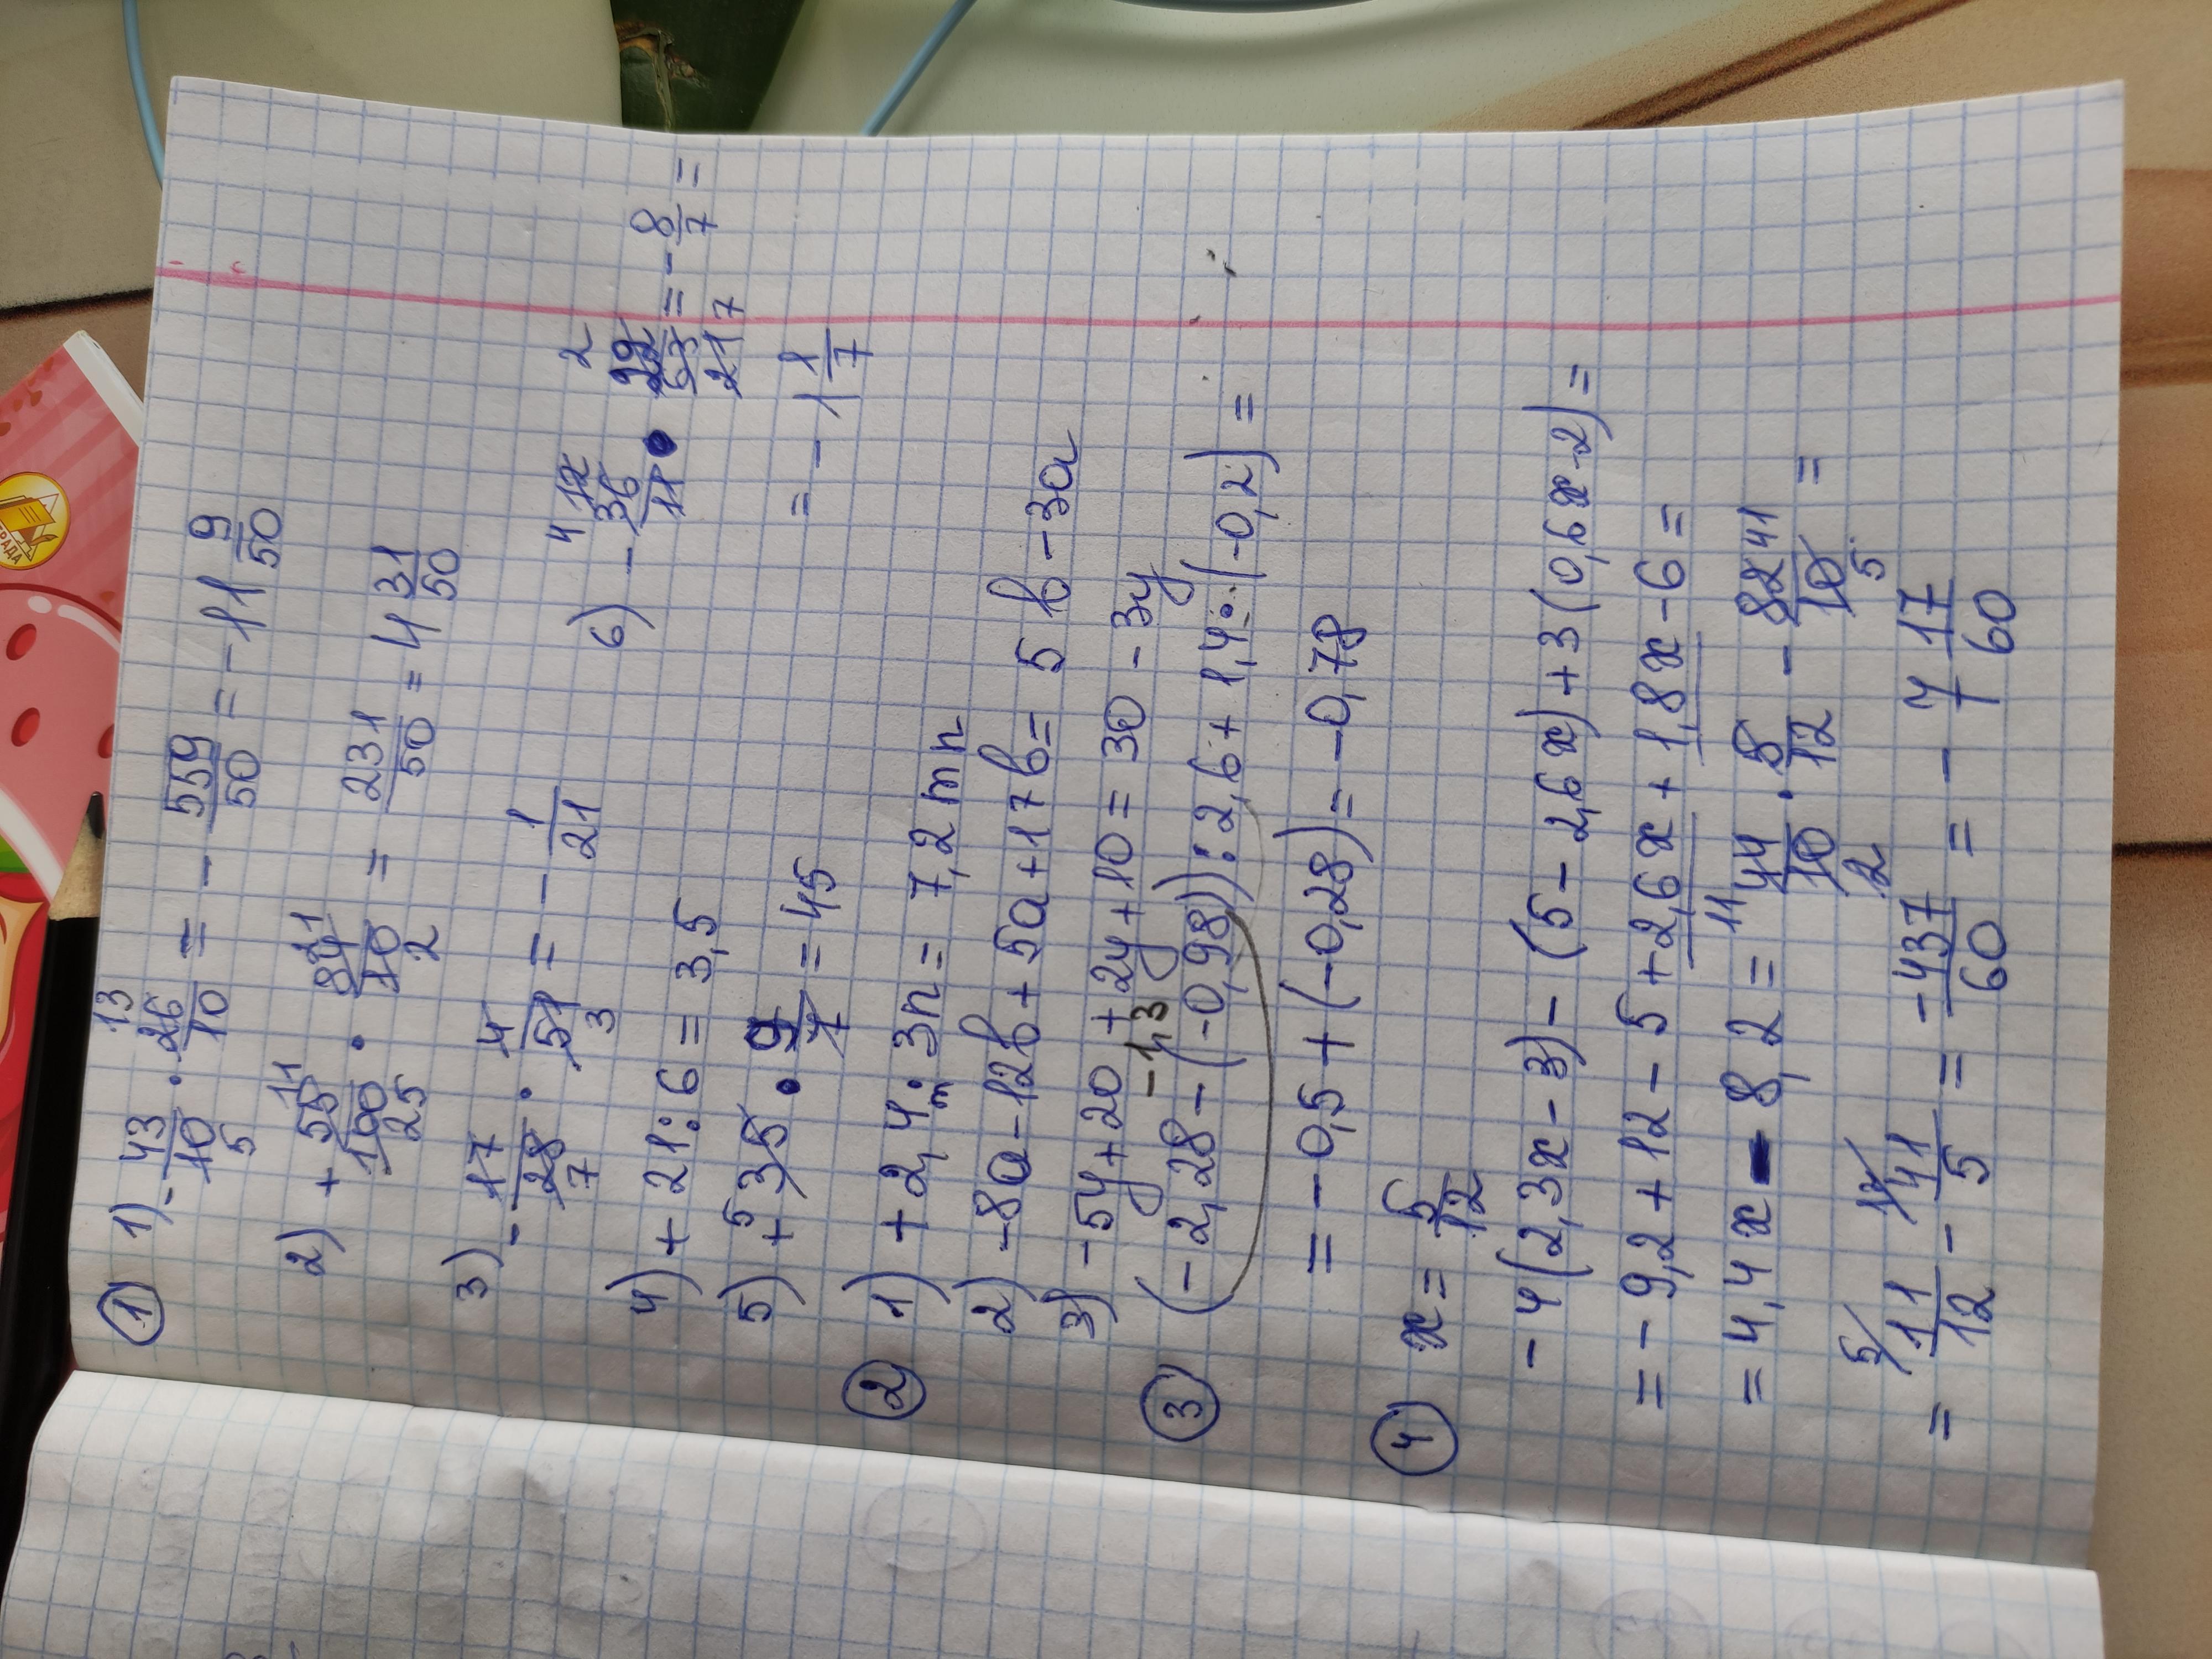 ① 1) - 43/10 · 26/10 = - 559/50 = - 11 9/50
13
5
2) + 55/100 · 84/10 = 231/50 = 4 31/50
11 21
25 2
3) - 17/28 · 4/51 = - 1/21
7 3
4) + 21 : 6 = 3,5
5) + 35 · 9/7 = 45
5
6) - 36/11 · 22/63 = - 8/7 =
4 12 2
21 7
= - 1 1/7
② 1) + 2,4m · 3n = 7,2 mn
2) -8a - 12b + 5a + 17b = 5b - 3a
3) -5y + 20 + 2y + 10 = 30 - 3y
-1,3
③ (-2,28 - (-0,98)) : 2,6 + 1,4 · (-0,2) =
= -0,5 + (-0,28) = -0,78
④ x = 5/12
-4(2,3x - 3) - (5 - 2,6x) + 3(0,6x - 2) =
= -9,2 + 12 - 5 + 2,6x + 1,8x - 6 =
= 4,4x - 8,2 = 44/10 · 5/12 - 82/10 =
11 41
2 5
5/ 12/
= 11/12 - 41/5 = -437/60 = - 7 17/60